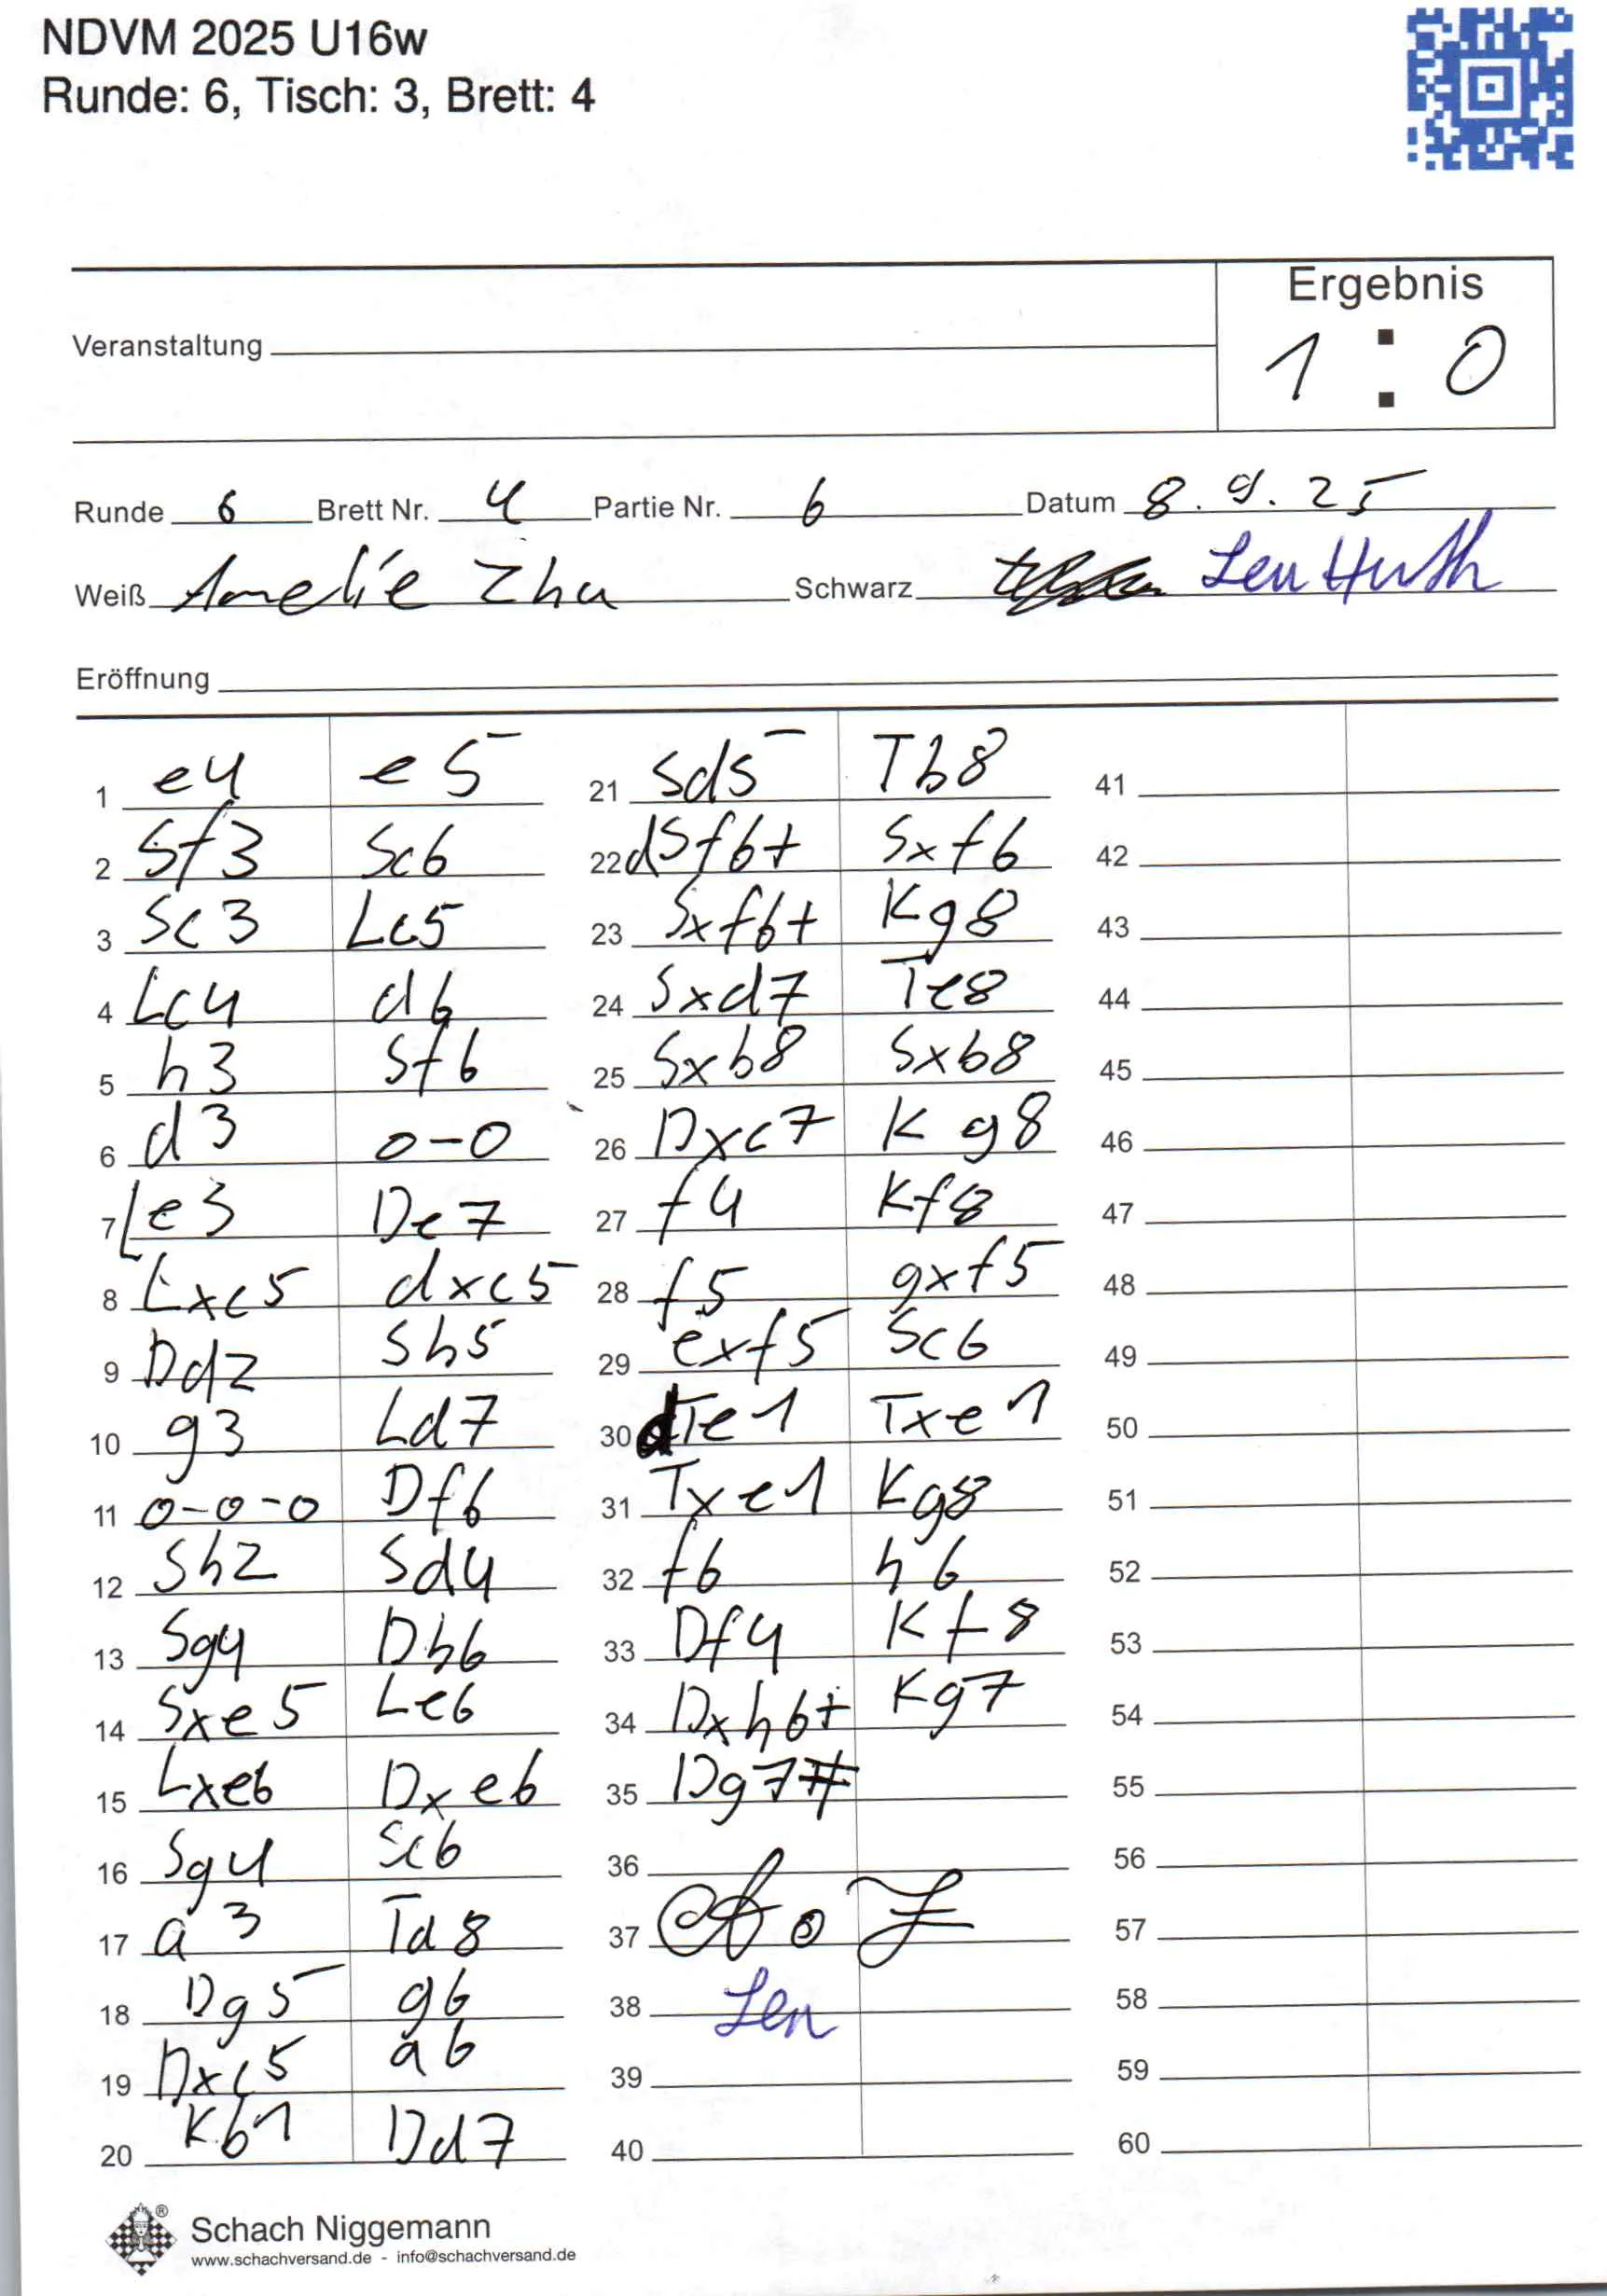 NDVM 2025 U16w
Runde: 6, Tisch: 3, Brett: 4
Ergebnis
Veranstaltung
1 : 0
Runde 6 Brett Nr. 4 Partie Nr. 6 Datum 8.9.25
Weiß Amelie Zhu Schwarz Len Huth
Eröffnung
1 e4 e5 21 Sd5 Tb8 41
2 Sf3 Sc6 22 dSf6+ Sxf6 42
3 Sc3 Lc5 23 Sxf6+ Kg8 43
4 Lc4 d6 24 Sxd7 Te8 44
5 h3 Sf6 25 Sxb8 Sxb8 45
6 d3 0-0 26 Dxc7 Kg8 46
7 Le3 De7 27 f4 Kf8 47
8 Lxc5 dxc5 28 f5 gxf5 48
9 Dd2 Sh5 29 exf5 Sc6 49
10 g3 Ld7 30 dTe1 Txe1 50
11 0-0-0 Df6 31 Txe1 Kg8 51
12 Sh2 Sd4 32 f6 h6 52
13 Sg4 Db6 33 Df4 Kf8 53
14 Sxe5 Le6 34 Dxh6+ Kg7 54
15 Lxe6 Dxe6 35 Dg7# 55
16 Sg4 Sc6 36 56
17 a3 Td8 37 57
18 Dg5 g6 38 Len 58
19 Dxc5 a6 39 59
20 Kb1 Dd7 40 60
Schach Niggemann
www.schachversand.de - info@schachversand.de